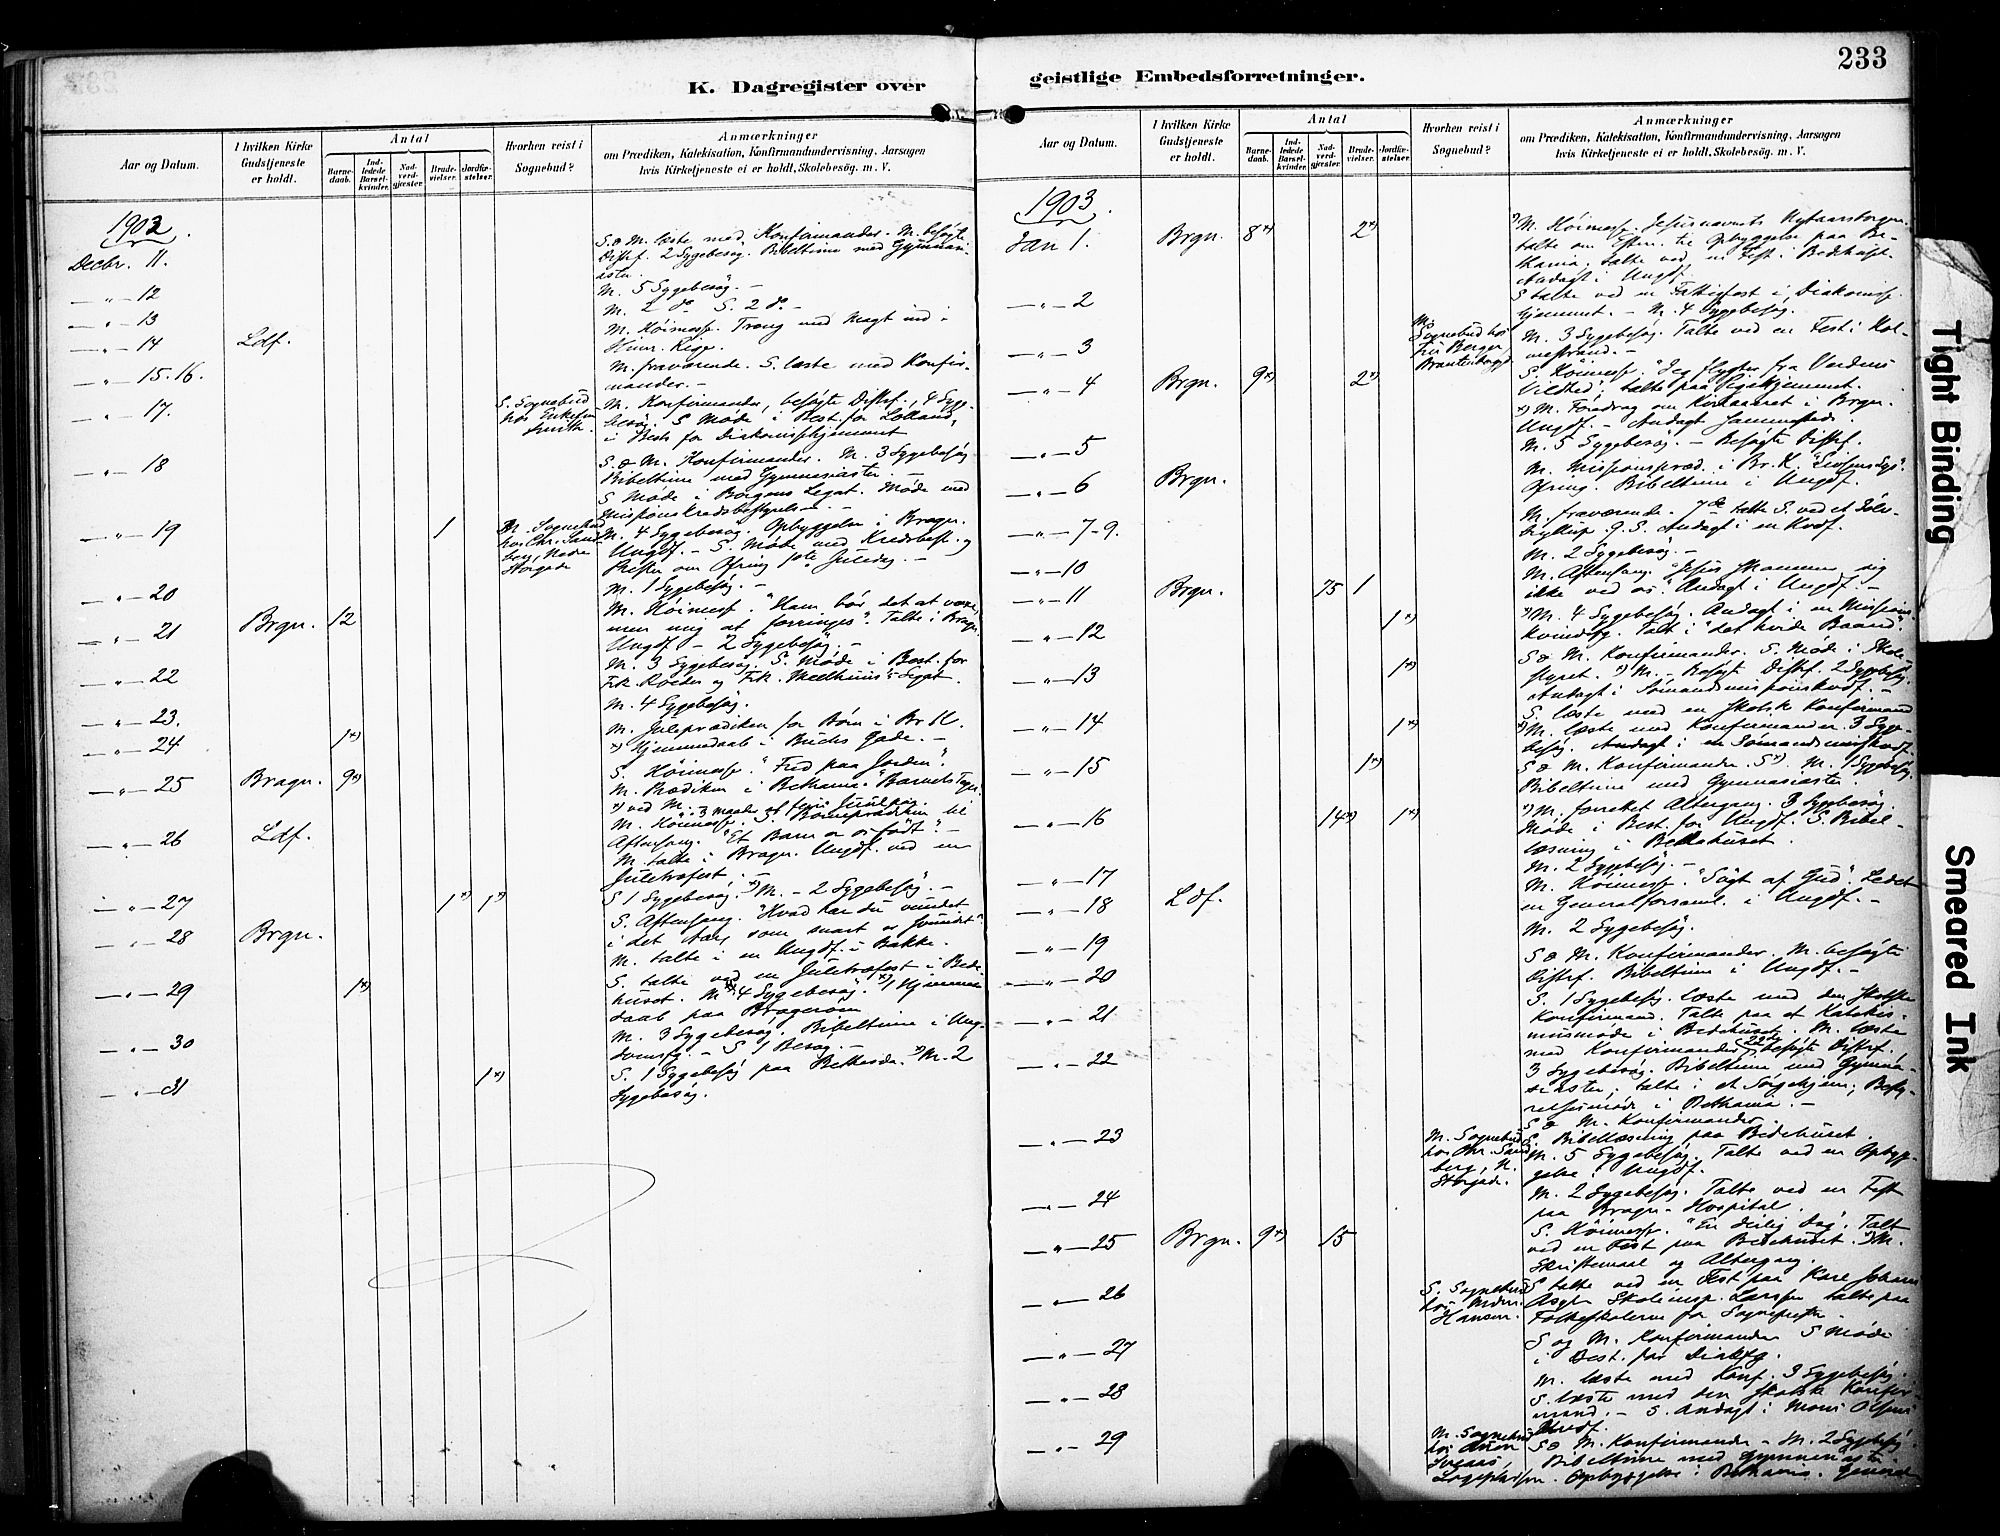 233
K. Dagregister over geistlige Embedsforretninger.
Aar og Datum.
I hvilken Kirke Gudstjeneste er holdt.
Antal
Barnedaab.
Indledede Barselkvinder.
Nadverdgjester.
Brudevielser.
Jordfæstelser.
Hvorhen reist i Sognebud?
Anmærkninger
om Prædiken, Katekisation, Konfirmandundervisning, Aarsagen
hvis Kirketjeneste ei er holdt, Skolebesög. m. V.
1902.
Decbr. 11.
S. & M. læste med Konfirmander. M. besøgte
Distrf. 2 Sygebesøg. Bibeltime med Gymnasi-
aster.
— " — 12
M. 5 Sygebesøg. —
— " — 13
M. 2 do S. 2 do —
— " — 14 Ldf.
M. Höimesse. Trang med Magt ind i
Himr. Rige.
— " — 15.16.
M. fraværende. S. læste med Konfir-
mander. —
— " — 17.
S. Sognebud
hos Eriksen
Smith.
M. Konfirmander, besøgte Distrf., 4 Syge-
besøg. S Møde i Best. for Lolland,
i Best. for Diakonissehjemmet
— " — 18
S. & M. Konfirmander. M. 3 Sygebesøg
Bibeltime med Gymnasiaster.
S Møde i Børgens Legat. Møde med
Missionskredsbestyrelsen. —
" — 19 1
M. Sognebud
hos Chr. Sand-
berg, Nedre
Storgade
M. 4 Sygebesøg. Opbyggelse i Bragn.
Ungdf. — S. Møde med Kredsbest. og
Præster om Ofring 1ste Juledag. —
— " — 20
M. 1 Sygebesøg. —
— " — 21 Brgn. 12
M. Höimesse. "Ham bør det at voxe,
men mig at forringes". Talte i Bragn.
Ungdf — 2 Sygebesøg. —
— " — 22
M. 3 Sygebesøg. S. Møde i Best. for
Frk. Roeder og Frk. Meelhuus's Legat.
— " — 23.
M. 4 Sygebesøg.
— " — 24 1x)
M. Juleprædiken for Børn i Br K.
x) Hjemmedaab i Buchs Gade. —
— " — 25 Bragn. 9x)
S. Höimesse. "Fred paa Jorden".
M. Prædiken i Bethania.
x) ved M.
— " — 26 Ldf.
M. Höimesse. S. Børneprædiken til
Aftensang. "Et Barn er os født". —
M. talte i Bragn. Ungdf. ved en
Juletræfest. —
— " — 27 1x) 1x)
S 1 Sygebesøg. x) M. — 2 Sygebesøg. —
— " — 28 Brgn.
S. Aftensang. "Hvad har du vundet
i det Aar, som snart er svundet".
M. talte i en Ungdf. i Bakke.
— " — 29 1x)
S. talte ved en Juletræfest i Bede-
huset. M 4 Sygebesøg. x) 1 Hjemme-
daab paa Bragerøen
— " — 30
M. 3 Sygebesøg. Bibeltime i Ung-
domsfg. — S 1 Besøg. —
— " — 31 1x)
S. 1 Sygebesøg paa Bethesda. x) M. 2
Sygebesøg.
Aar og Datum.
I hvilken Kirke Gudstjeneste er holdt.
Antal
Barnedaab.
Indledede Barselkvinder.
Nadverdgjester.
Brudevielser.
Jordfæstelser.
Hvorhen reist i Sognebud?
Anmærkninger
om Prædiken, Katekisation, Konfirmandundervisning, Aarsagen
hvis Kirketjeneste ei er holdt, Skolebesög. m. V.
1903.
Jan 1. Brgn. 8x) 2x)
x) M. Höimesse. Jesusnavnets Nytaarsborgen.
talte om Eftm. til Opbyggelse paa Be-
thania. talte ved en Fest i Bedehuset.
Andagt i Ungdf.
— " — 2
S talte ved en Fattigfest i Diakonisse-
hjemmet. — M. 4 Sygebesøg.
— " — 3
M.
Sognebud hos
Fru Berger
M. 3 Sygebesøg. Talte ved en Fest i Hol-
mestrand. —
— " — 4 Brgn. 9x) 2x)
S. Höimesse. "Jeg flygter fra Verdens
Vildhed". talte paa Sygehjemmet.
x) M. Foredrag om Kirkeaaret i Brgn.
Ungdf. — Andagt sammesteds.
— " — 5
M. 5 Sygebesøg. — Besøgte Distrf.
— " — 6 Brgn.
M. Missionspræd. i Br. K.
Ofring. Bibeltime i Ungdf.
— " — 7-9.
M. fraværende. 7de talte S. ved et Sølv-
bryllup. 9. S. Andagt i en Kvdf.
— " — 10
M. 2 Sygebesøg. —
— " — 11 Brgn. 75 1
M. Aftensang. "Jesus skammer sig
ikke ved os". Andagt i Ungdf. —
— " — 12 1x)
x) M. 4 Sygebesøg. Andagt i en Missions-
kvindefg. Talt i "det hvide Baand".
— " — 13 1x)
S & M. Konfirmander. S. Møde i Skole-
styret. x) M. — Besøgte Distrf. 2 Sygebesøg.
Andagt i Sømandsmissionskvdf. —
— " — 14 1x)
S. læste med en skotsk Konfirmand
x) M. læste med Konfirmander. 3 Syge-
besøg. Andagt i en Sømandsmisskvdf.
— " — 15 1x)
S & M. Konfirmander. S x). M. 1 Sygebesøg.
Bibeltime med Gymnasiaster
— " — 16 14x) 1x)
x) M. forrettet Altergang. 3 Sygebesøg.
Møde i Best. for Ungdf. S. Bibel-
læsning i Bedehuset.
— " — 17
M. 2 Sygebesøg. —
— " — 18 Ldf.
M. Höimesse. "Søgt af Gud". Ledet
en Generalforsaml. i Ungdf. —
— " — 19
M. 2 Sygebesøg.
— " — 20
S & M. Konfirmander. M. besøgte
Distrf. Bibeltime i Ungdf. —
— " — 21
S. 1 Sygebesøg. læste med den skotske
Konfirmand. Talte paa et Katekis-
musmøde i Bedehuset. M. læste
med Konfirmander
— " — 22
22de besøgte Distrf.
3 Sygebesøg. Bibeltime med Gymna-
siaster, talte i et Sørgehjem; Besty-
relsesmøde i Bethania. —
S & M. Konfirmander.
— " — 23
M. Sognebud
hos Chr. Sand-
berg, N.
Storgade.
S. Bibellæsning paa Bedehuset.
M. 5 Sygebesøg. Talte ved en Opbyg-
gelse i Ungdf.
— " — 24
M. 2 Sygebesøg. Talte ved en Fest
paa Bragn. Hospital.
— " — 25 Brgn. 9x) 15
S. Höimesse. "En deilig Dag". Talt
ved en Fest paa Bedehuset. x) M.
Skriftemaal og Altergang.
— " — 26
S. Sognebud
hos
Hansen.
S talte ved en Fest paa Karl Johans
Asyl. Skoleinsp. Larssen talte paa
Folkeskolerne for Sognepræsten
— " — 27
S og M. Konfirmander S Møde
i Best. for
— " — 28
M. læste med Konf. 3 Sygebesøg.
S. læste med den skotske Konfir-
mand. — S. Andagt i Mons Olsens
Kvdf.
— " — 29
M. Sognebud
hos
S & M. Konfirmander — M. 2 Sygebesøg
Bibeltime med Gymnasiaster.
Opbyggelse i Bethania.
Tight Binding
Smeared Ink